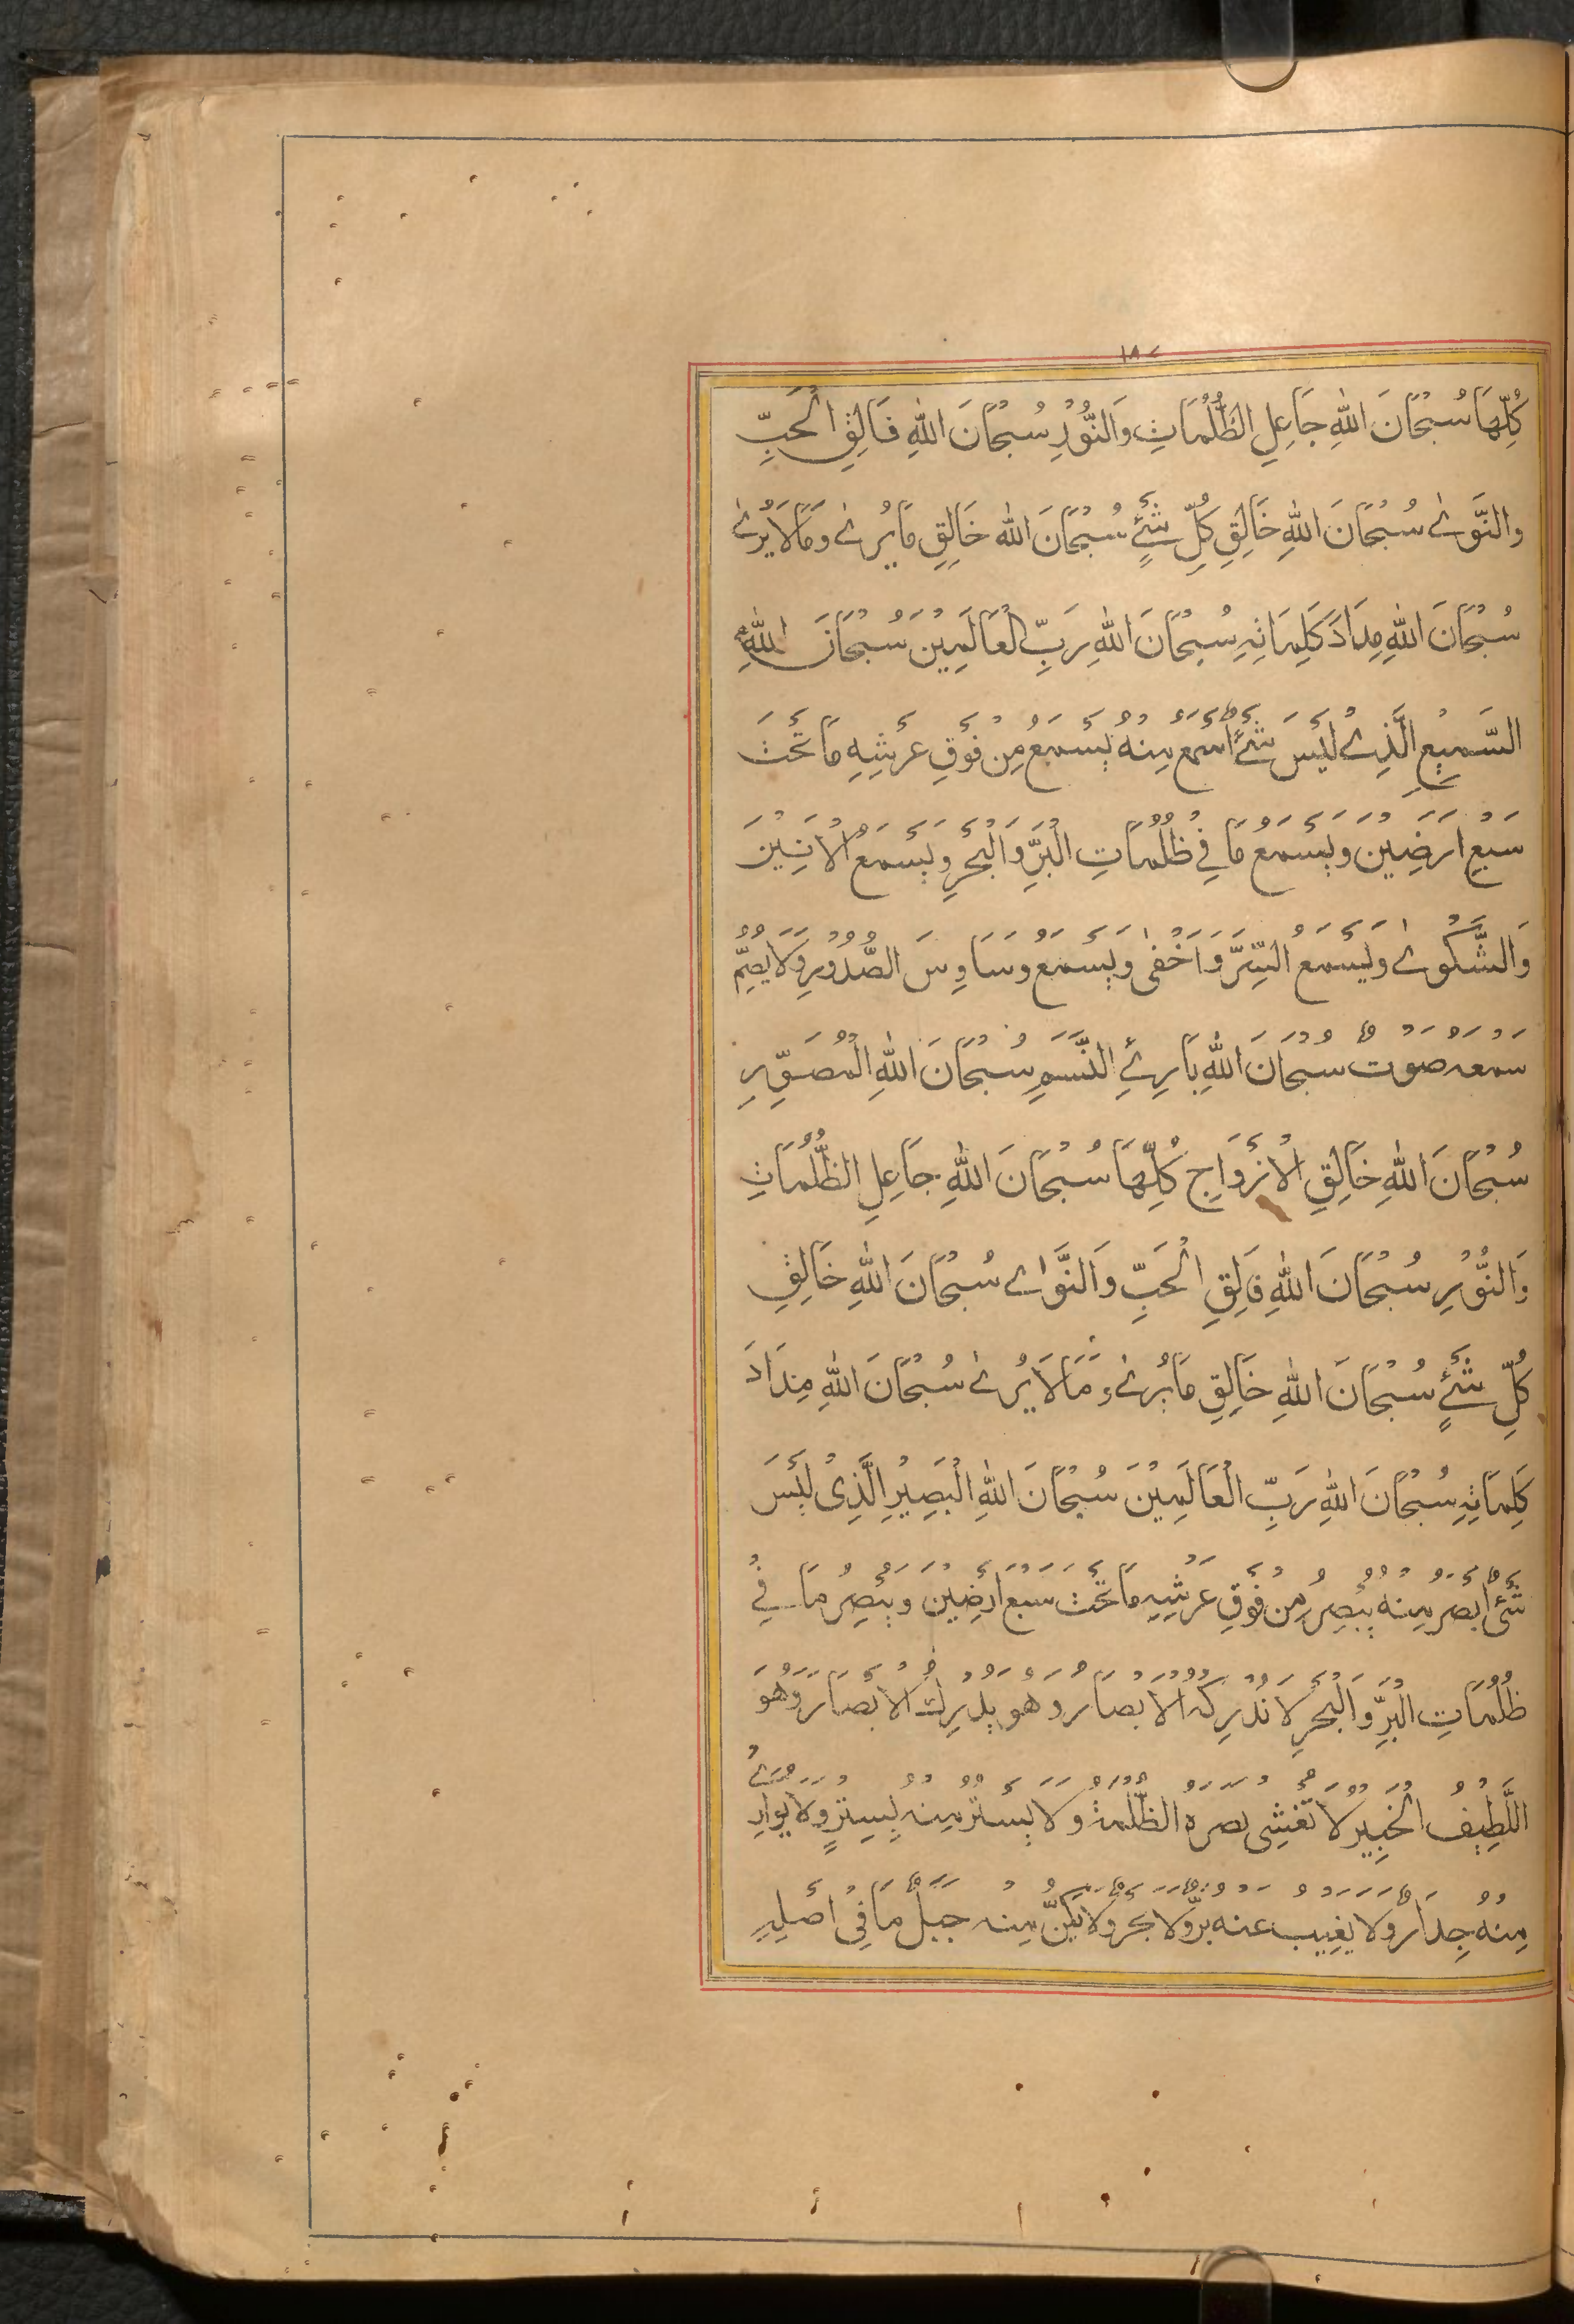 ١٨٧
كُلِّهَا سُبْحَانَ اللّٰهِ جَاعِلِ الظُّلُمَاتِ وَالنُّوْرِ سُبْحَانَ اللّٰهِ فَالِقِ الْحَبِّ
وَالنَّوٰے سُبْحَانَ اللّٰهِ خَالِقِ كُلِّ شَیْءٍ سُبْحَانَ اللّٰه خَالِقِ مَا يُرٰے وَمَا لَا يُرٰے
سُبْحَانَ اللّٰهِ مِدَادَ كَلِمَاتِهِ سُبْحَانَ اللّٰهِ رَبِّ الْعَالَمِيْنَ سُبْحَانَ اللّٰهِ
السَّمِيْعِ الَّذِے لَيْسَ شَیْءٌ اَسْمَعَ مِنْهُ يَسْمَعُ مِنْ فَوْقِ عَرْشِهِ مَا تَحْتَ
سَبْعِ اَرَضِيْنَ وَيَسْمَعُ مَا فِيْ ظُلُمَاتِ الْبَرِّ وَالْبَحْرِ وَيَسْمَعُ الْاَنِيْنَ
وَالشَّكْوٰے وَيَسْمَعُ السِّرَّ وَاَخْفٰى وَيَسْمَعُ وَسَاوِسَ الصُّدُوْرِ وَلَا يُصِمُّ
سَمْعَهُ صَوْتٌ سُبْحَانَ اللّٰهِ بَارِئِ النَّسَمِ سُبْحَانَ اللّٰهِ الْمُصَوِّرِ
سُبْحَانَ اللّٰهِ خَالِقِ الْاَزْوَاجِ كُلِّهَا سُبْحَانَ اللّٰهِ جَاعِلِ الظُّلُمَاتِ
وَالنُّوْرِ سُبْحَانَ اللّٰهِ فَالِقِ الْحَبِّ وَالنَّوٰاے سُبْحَانَ اللّٰهِ خَالِقِ
كُلِّ شَیْءٍ سُبْحَانَ اللّٰهِ خَالِقِ مَا يُرٰے وَمَا لَا يُرٰے سُبْحَانَ اللّٰهِ مِدَادَ
كَلِمَاتِهِ سُبْحَانَ اللّٰهِ رَبِّ الْعَالَمِيْنَ سُبْحَانَ اللّٰهِ الْبَصِيْرِ الَّذِیْ لَيْسَ
شَیْءٌ اَبْصَرَ مِنْهُ يُبْصِرُ مِنْ فَوْقِ عَرْشِهِ مَا تَحْتَ سَبْعِ اَرَضِيْنَ وَيُبْصِرُ مَا فِيْ
ظُلُمَاتِ الْبَرِّ وَالْبَحْرِ لَا تُدْرِكُهُ الْاَبْصَارُ وَهُوَ يُدْرِكُ الْاَبْصَارَ وَهُوَ
اللَّطِيْفُ الْخَبِيْرُ لَا تُغْشِی بَصَرَهُ الظُّلْمَةُ وَلَا يُسْتَتَرُ مِنْهُ بِسِتْرٍ وَلَا يُوَارِيْ
مِنْهُ جِدَارٌ وَلَا يَغِيْبُ عَنْهُ بَرٌّ وَلَا بَحْرٌ وَلَا يَكُنُّ مِنْهُ جَبَلٌ مَا فِیْ اَصْلِهِ